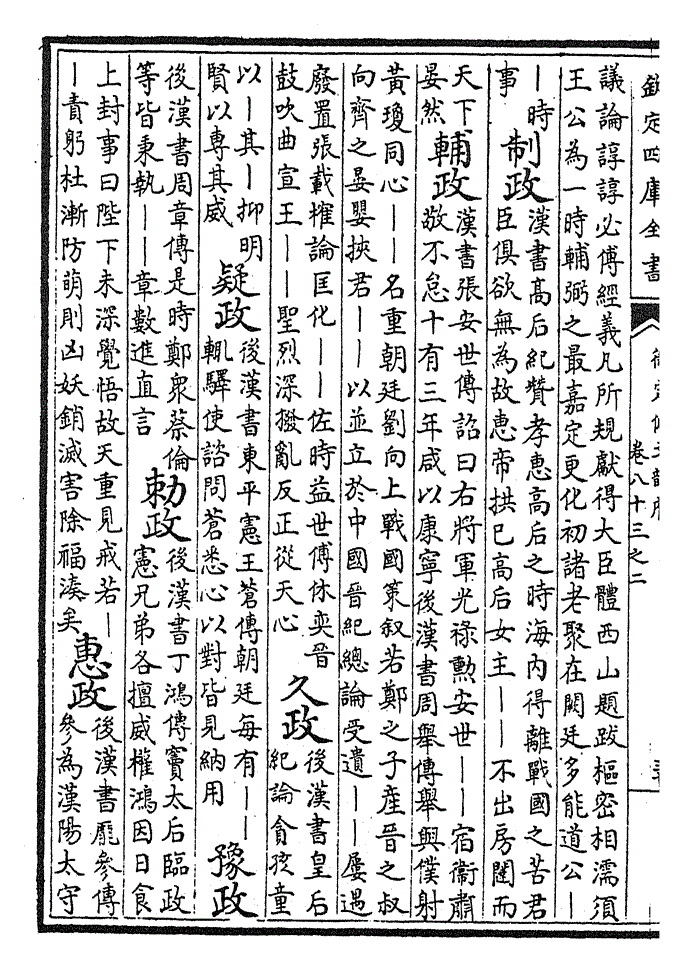 欽定四庫全書
御定佩文韻府
卷八十三之二
議論諄諄必傅經義凡所規獻得大臣體西山題跋樞密相濡須
王公為一時輔弼之最嘉定更化初諸老聚在闕廷多能道公｜
｜時
事
制政
漢書高后紀贊孝惠高后之時海内得離戰國之苦君
臣俱欲無為故惠帝拱已高后女主｜｜不出房闥而
天下
晏然
輔政
漢書張安世傳詔曰右將軍光祿勲安世｜｜宿衛肅
敬不怠十有三年咸以康寧後漢書周舉傳舉與僕射
黃瓊同心｜｜名重朝廷劉向上戰國策叙若鄭之子產晉之叔
向齊之晏嬰挾君｜｜以並立於中國晉紀總論受遺｜｜屢遇
廢置張載搉論匡化｜｜佐時益世傅休奕晉
鼓吹曲宣王｜｜聖烈深撥亂反正從天心
久政
後漢書皇后
紀論貪孩童
以｜其｜抑明
賢以專其威
疑政
後漢書東平憲王蒼傳朝廷每有｜｜
輒驛使諮問蒼悉心以對皆見納用
豫政
後漢書周章傳是時鄭衆蔡倫
等皆秉執｜｜章數進直言
勅政
後漢書丁鴻傳竇太后臨政
憲兄弟各擅威權鴻因日食
上封事曰陛下未深覺悟故天重見戒若｜
｜責躬杜漸防萌則凶妖銷滅害除福湊矣
惠政
後漢書龐參傳
參為漢陽太守